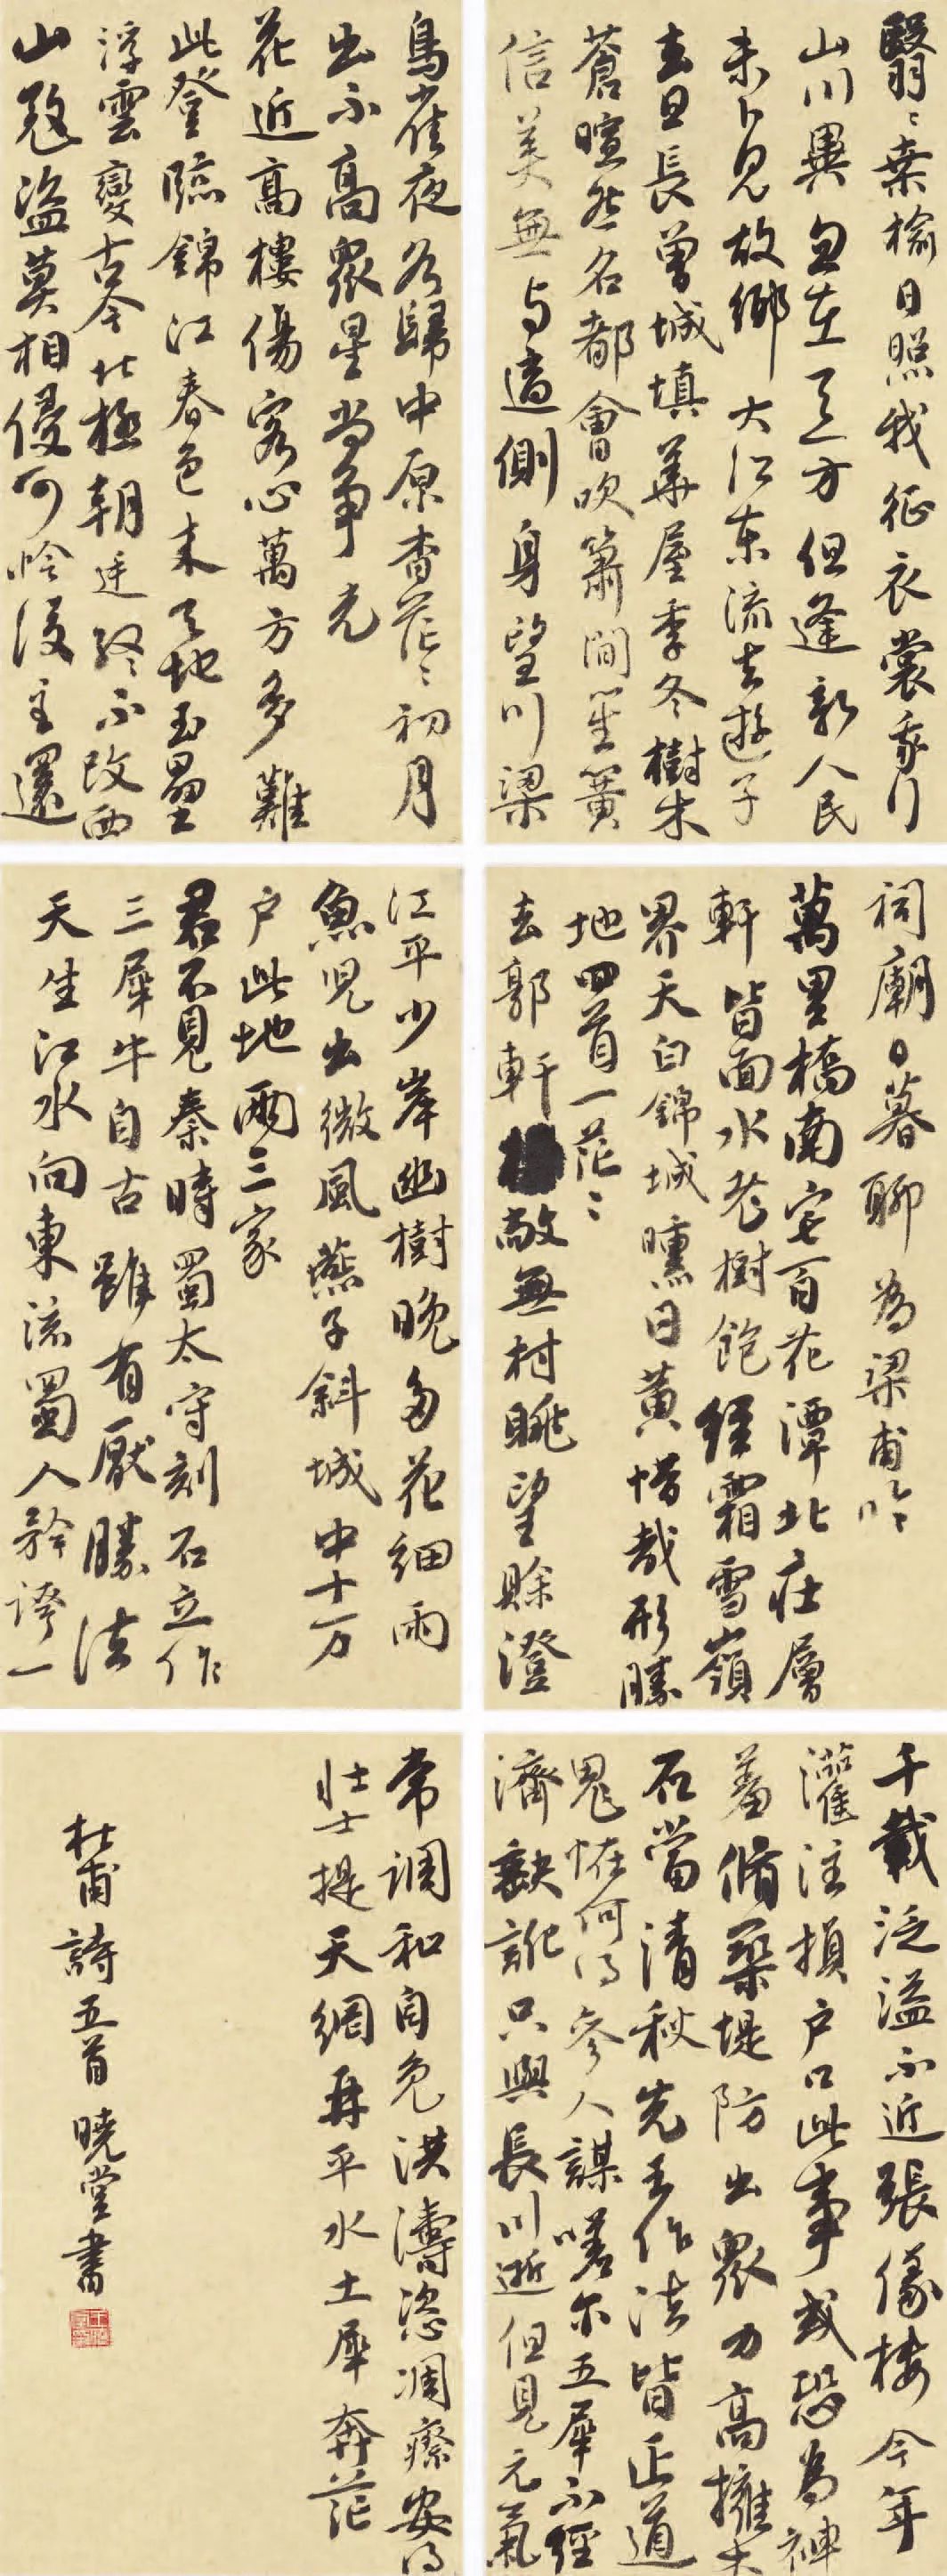 翳翳桑榆日照我征衣裳我行
山川異忽在天一方但逢新人民
未卜見故鄉大江東流去遊子
去日長曾城填華屋季冬樹木
蒼喧然名都會吹簫間笙簧
信美無與適側身望川梁
鳥雀夜各歸中原杳茫茫初月
出不高衆星尚爭光
花近高樓傷客心萬方多難
此登臨錦江春色來天地玉壘
浮雲變古今北極朝廷終不改西
山寇盜莫相侵可憐後主還
祠廟日暮聊為梁甫吟
萬里橋南宅百花潭北莊層
軒皆面水老樹飽經霜雪嶺
界天白錦城曛日黃惜哉形勝
地回首一茫茫
去郭軒敞無村眺望賒澄
江平少岸幽樹晚多花細雨
魚兒出微風燕子斜城中十万
户此地兩三家
君不見秦時蜀太守刻石立作
三犀牛自古雖有厭勝法
天生江水向東流蜀人矜誇一
千載泛溢不近張儀樓今年
灌注損户口此事或恐為神
羞脩築堤防出衆力高擁木
石當清秋先王作法皆正道
鬼怪何得參人謀嗟尔五犀不經
濟缺訛只與長川逝但見元氣
常調和自免洪濤恣凋瘵安得
壯士提天綱再平水土犀奔茫
杜甫詩五首 曉堂書